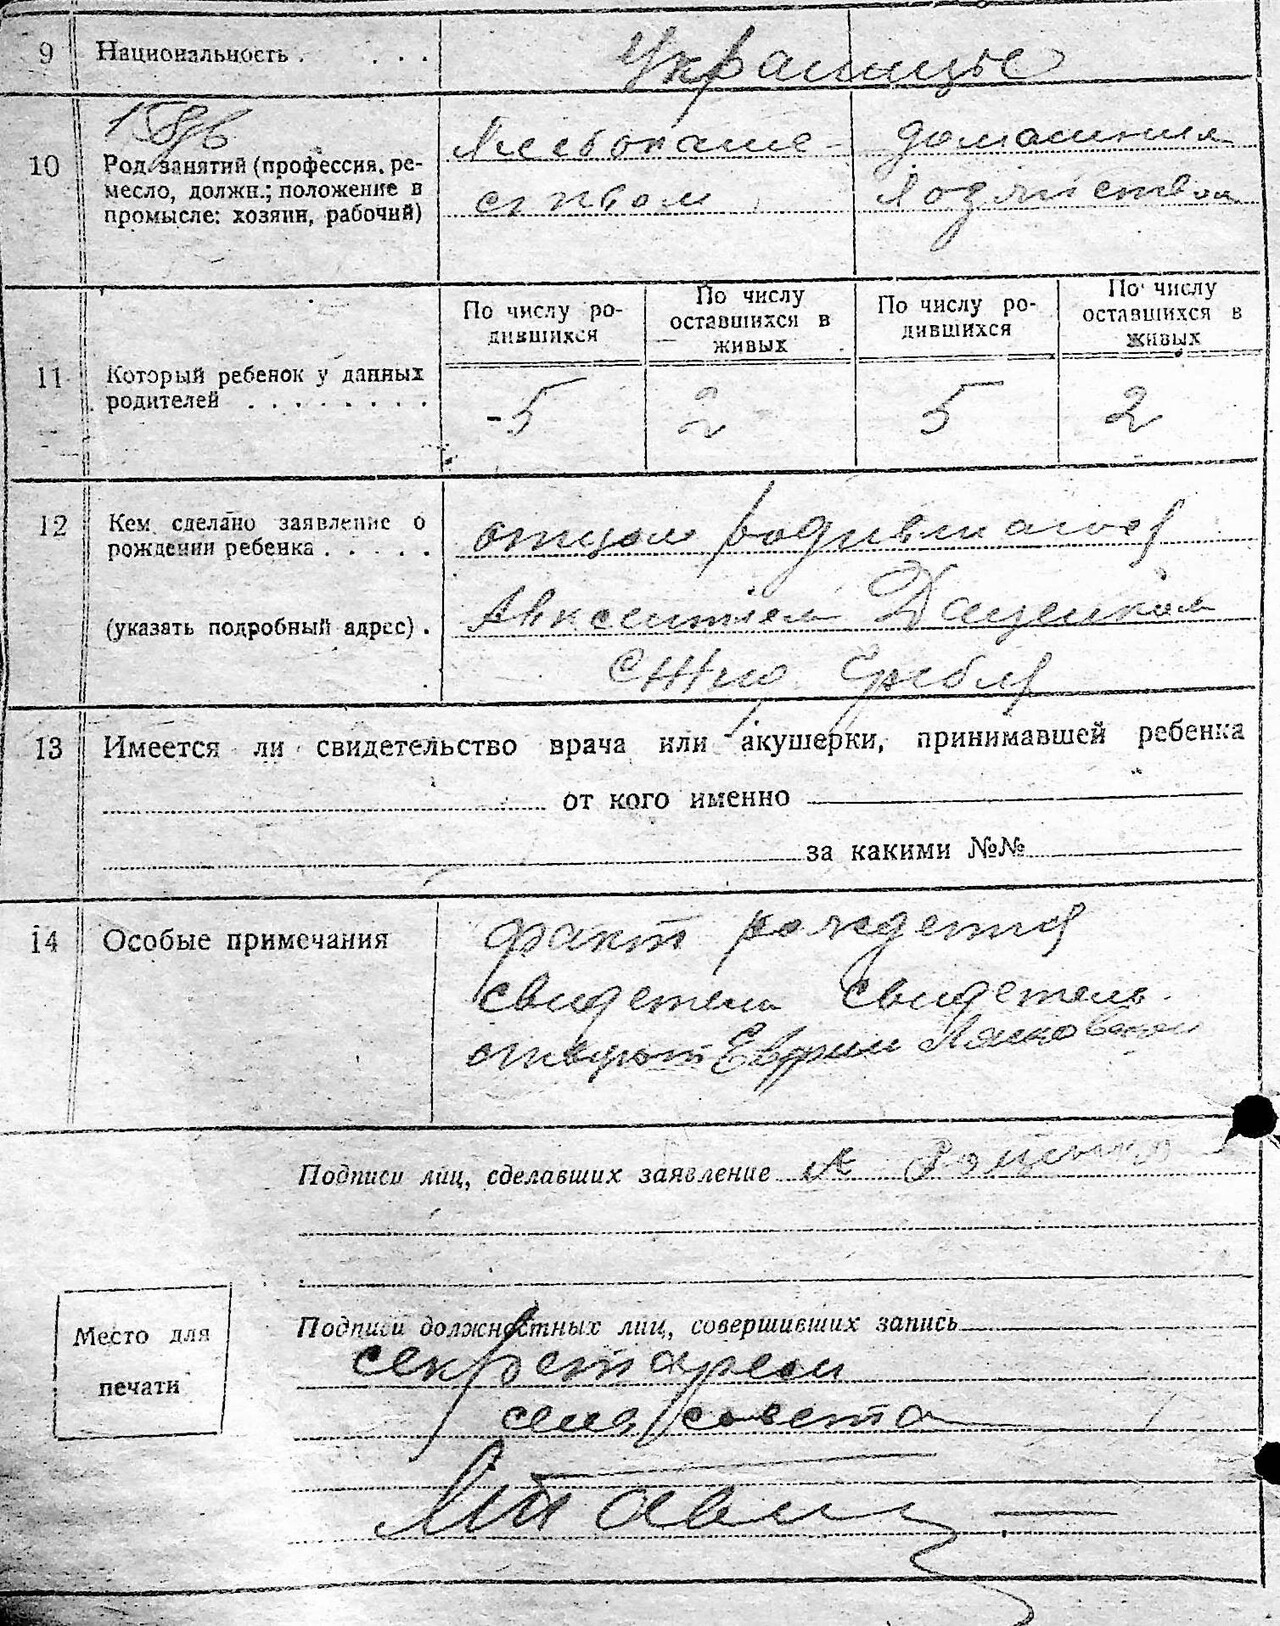 9 Национальность . . . . Украинцы
10 Род занятий (профессия, ре-
месло, должн.; положение в
промысле: хозяин, рабочий)
Хлебопаше- домашним
ством
11 Который ребенок у данных
родителей . . . . . . . .
По числу ро-
дившихся
По числу
оставшихся в
живых
По числу ро-
дившихся
По числу
оставшихся в
живых
-5 2 5 2
12 Кем сделано заявление о
рождении ребенка . . . . .
(указать подробный адрес) .
отцом родившагося
Авксентием Даценком
13 Имеется ли свидетельство врача или акушерки, принимавшей ребенка
от кого именно
за какими №№
14 Особые примечания
факт рождения
свидетели свидетель
ствуют
Подписи лиц, сделавших заявление А
Подписи должностных лиц, совершивших запись
секретарем
сельсовета
Место для
печати